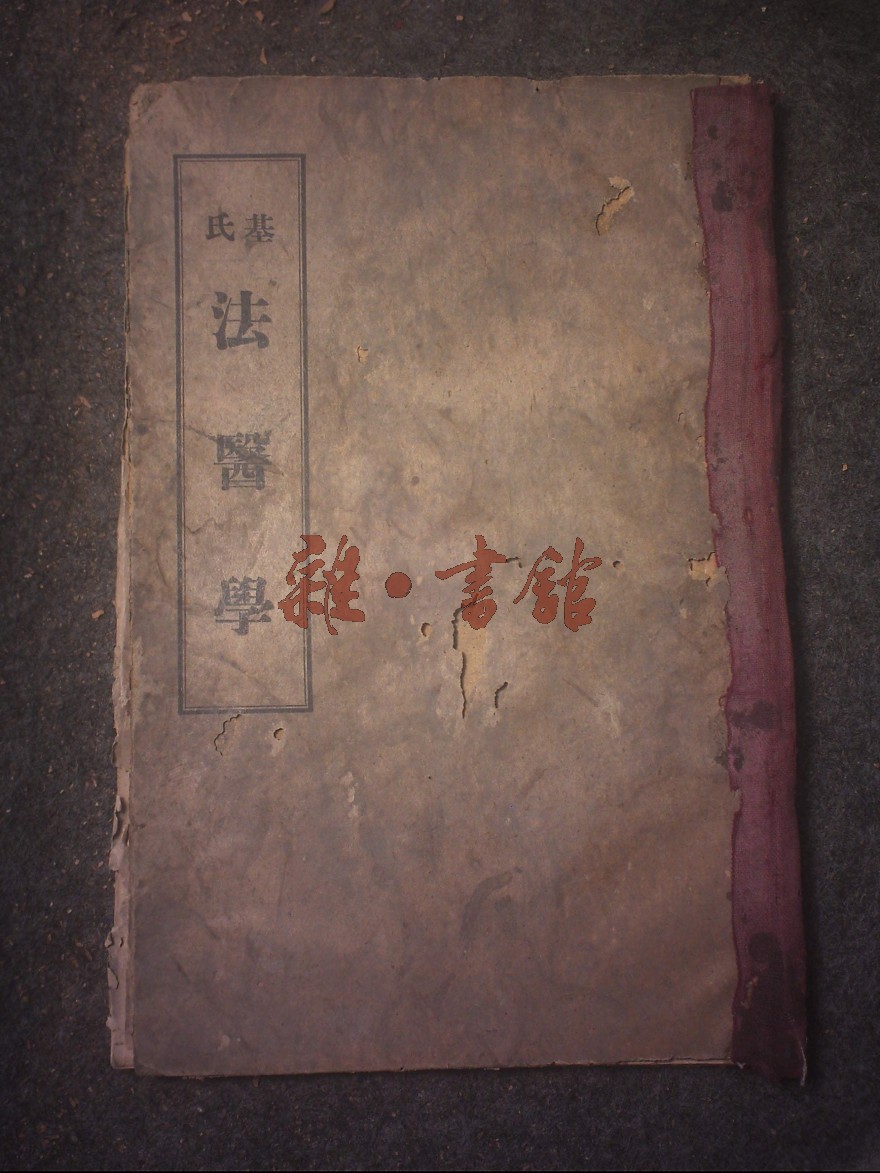 基氏
法醫學
雜·書館